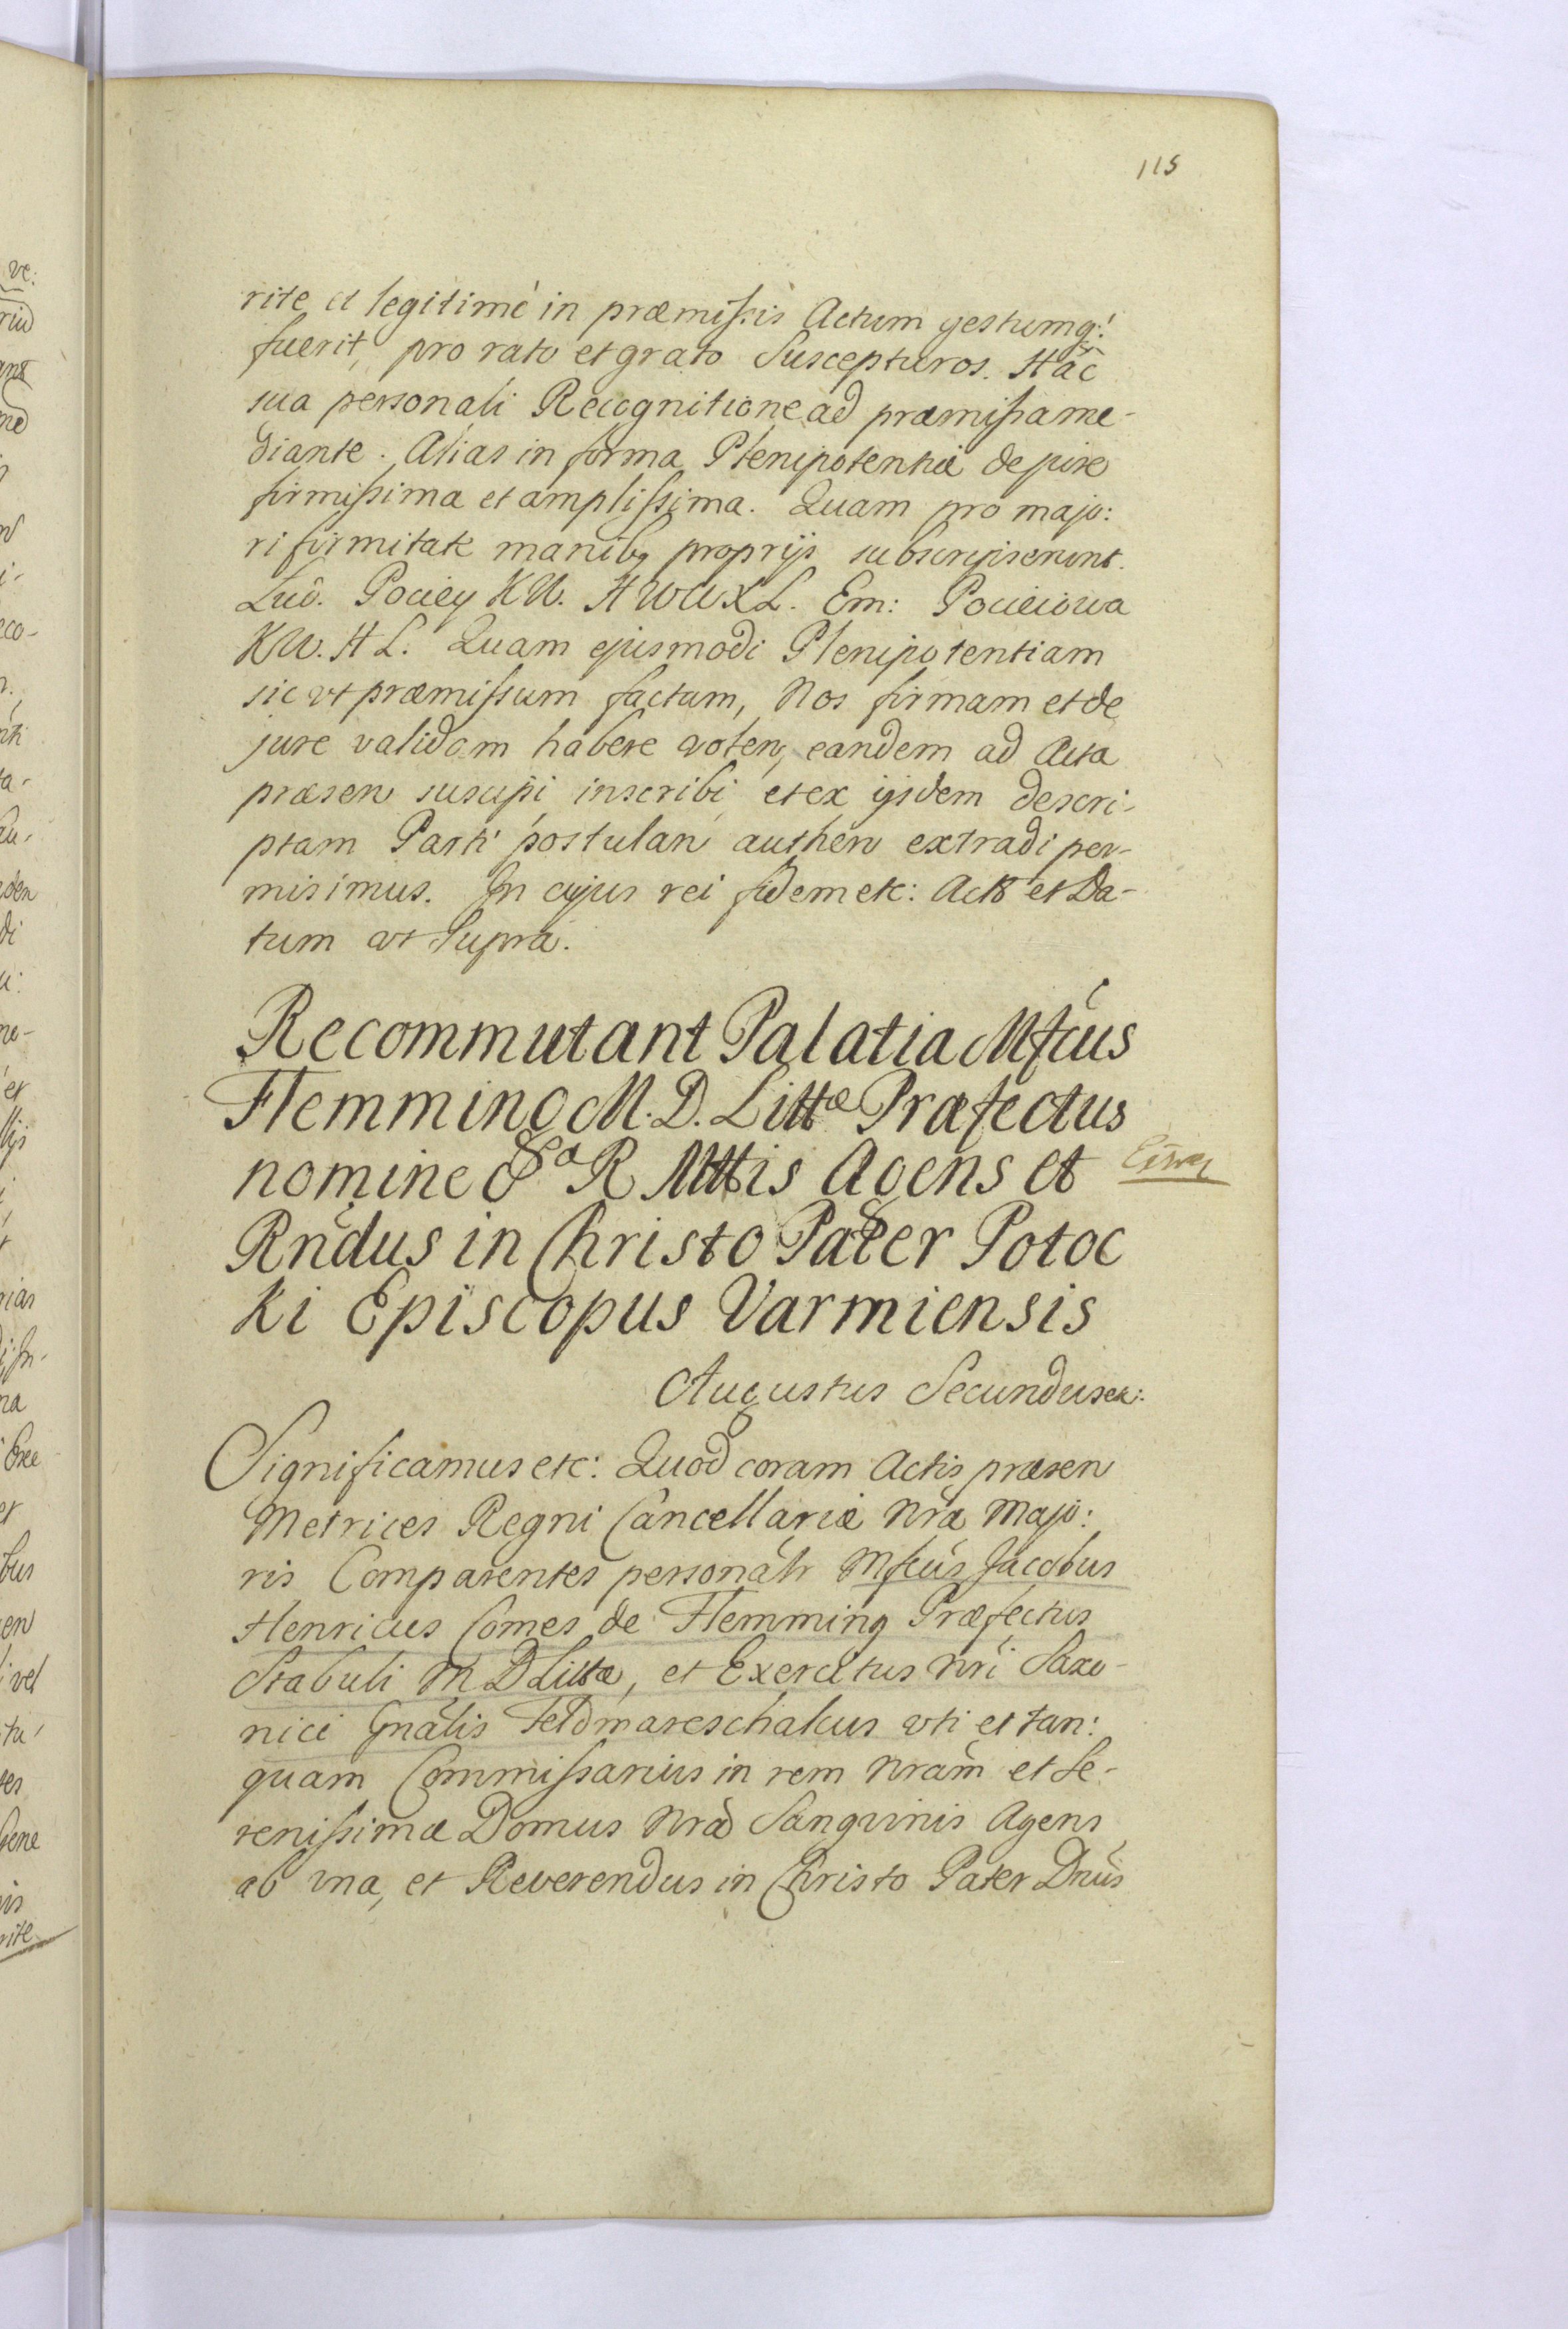 115
rite et legitimè in præmissis Actum gestumq:
fuerit, pro rato et grato Suscepturos. Hâc
sua personali Recognitione ad præmissa me-
diante. Alias in forma Plenipotentiæ de jure
firmissima et amplissima. Quam pro majo:
ri firmitate manibq proprijs subscripserunt.
Lud. Pociey KW. HWWXL. Em: Pocieiowa
KW. HL. Quam ejusmodi Plenipotentiam
sic vt præmissum factam, Nos firmam et de
jure validam habere volen, eandem ad Acta
præsen suscipi, inscribi et ex ijsdem descri-
ptam Parti postulan authen extradi per-
misimus. In cujus rei fidem etc: Act et Da-
tum vt Supra.
Recommutant Palatia Mfcus
Flemming M. D. Littæ Præfectus
nomine Sæ R Mttis Agens et
Rndus in Christo Pater Potoc
ki Episcopus Varmiensis
Augustus Secundus etc:
Significamus etc: Quod coram Actis præsen
Metrices Regni Cancellariæ Nræ Majo:
ris Comparentes personalr Mfcus Jacobus
Henricus Comes de Flemming Præfectus
Stabuli M D Littæ, et Exercitus Nri Saxo-
nici Gnalis Feldmareschalcus vti et tan:
quam Commissarius in rem Nram et Se-
renissimæ Domus Nræ Sanguinis Agens
ab vna, et Reverendus in Christo Pater Dnus